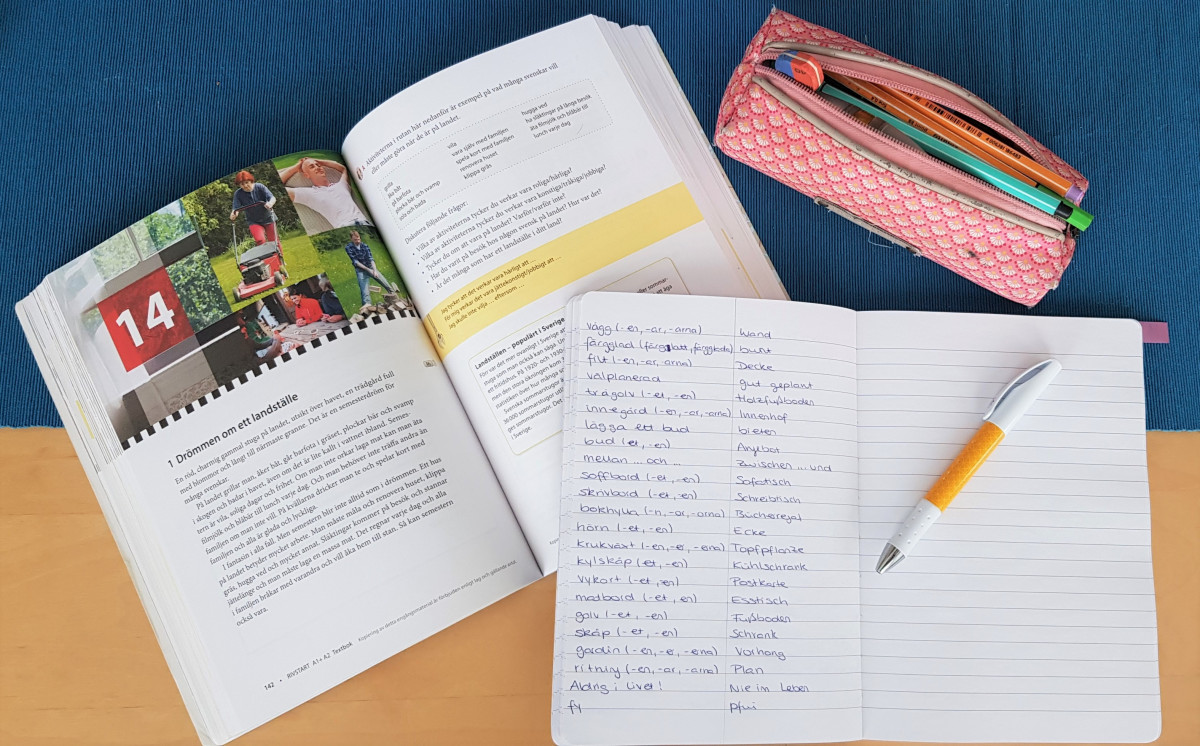 14
1 Drömmen om ett landställe
En röd, charmig gammal stuga på landet, utsikt över havet, en trädgård full
med blommor och långt till närmaste granne. Det är en semesterdröm för
många svenskar.
På landet grillar man, åker båt, går barfota i gräset, plockar bär och svamp
i skogen och badar i havet, även om det är lite kallt i vattnet ibland. Semes-
tern är vila, soliga dagar och frihet. Om man inte orkar laga mat kan man äta
filmjölk och blåbär till lunch varje dag. Och man behöver inte träffa andra än
familjen om man inte vill. På kvällarna dricker man te och spelar kort med
familjen och alla är glada och lyckliga.
I fantasin i alla fall. Men semestern blir inte alltid som i drömmen. Ett hus
på landet betyder mycket arbete. Man måste måla och renovera huset, klippa
gräs, hugga ved och mycket annat. Släktingar kommer på besök och stannar
jättelänge och man måste laga en massa mat. Det regnar varje dag och alla
i familjen bråkar med varandra och vill åka hem till stan. Så kan semestern
också vara.
142 • RIVSTART A1+A2 Textbok Kopiering av detta engångsmaterial är förbjuden enligt lag och gällande avtal.
Aktiviteterna i rutan här nedanför är exempel på vad många svenskar vill
eller måste göra när de är på landet.
grilla
åka båt
gå barfota
plocka bär och svamp
sola och bada
vila
vara själv med familjen
spela kort med familjen
renovera huset
klippa gräs
hugga ved
ha släktingar på långa besök
äta filmjölk och blåbär till
lunch varje dag
Diskutera följande frågor:
• Vilka av aktiviteterna tycker du verkar vara roliga/härliga?
• Vilka av aktiviteterna tycker du verkar vara konstiga/tråkiga/jobbiga?
• Tycker du om att vara på landet? Varför/varför inte?
• Har du varit på besök hos någon svensk på landet? Hur var det?
• Är det många som har ett landställe i ditt land?
Jag tycker att det verkar vara härligt att ...
För mig verkar det vara jättekonstigt/jobbigt att ...
Jag skulle inte vilja ... eftersom ...
Landställen – populärt i Sverige
vägg (-en, -ar, -arna) Wand
färgglad (färgglatt, färgglada) bunt
filt (-en, -ar, -arna) Decke
välplanerad gut geplant
trägolv (-et, -en) Holzfußboden
innergård (-en, -ar, -arna) Innenhof
lägga ett bud bieten
bud (-et, -en) Angebot
mellan ... och ... zwischen ... und
soffbord (-et, -en) Sofatisch
skrivbord (-et, -en) Schreibtisch
bokhylla (-n, -or, -orna) Bücherregal
hörn (-et, -en) Ecke
krukväxt (-en, -er, -erna) Topfpflanze
kylskåp (-et, -en) Kühlschrank
vykort (-et, -en) Postkarte
matbord (-et, -en) Esstisch
golv (-et, -en) Fußboden
skåp (-et, -en) Schrank
gardin (-en, -er, -erna) Vorhang
ritning (-en, -ar, -arna) Plan
Aldrig i livet! Nie im Leben
fy pfui